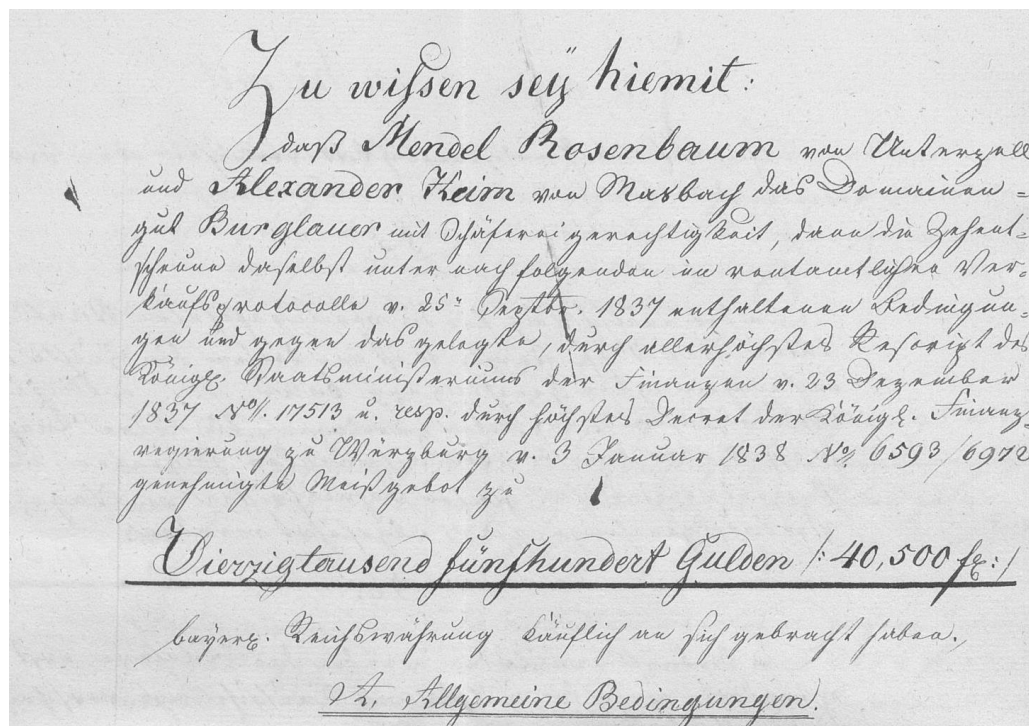 Zu wissen sey hiemit:
daß Mendel Rosenbaum von Unterzell
und Alexander Keim von Masbach das Domainen=
gut Burglauer mit Schäfereigerechtigkeit, dann die Zehent=
scheune daselbst unter nachfolgenden im rentamtlichen Ver=
kaufsprotocolle v. 25n Septbr. 1837 enthaltenen Bedingun=
gen und gegen das gelegte, durch allerhöchstes Rescript des
Königl. Staatsministeriums der Finanzen v. 23 Dezember
1837 No. 17513 u. resp. durch höchstes Decret der Königl. Finanz=
regierung zu Würzburg v. 3 Januar 1838 No. 6593/6972
genehmigte Meistgebot zu
Vierzigtausend fünfhundert Gulden /: 40,500 fl :/
bayer. Reichswährung käuflich an sich gebracht haben.
A, Allgemeine Bedingungen.